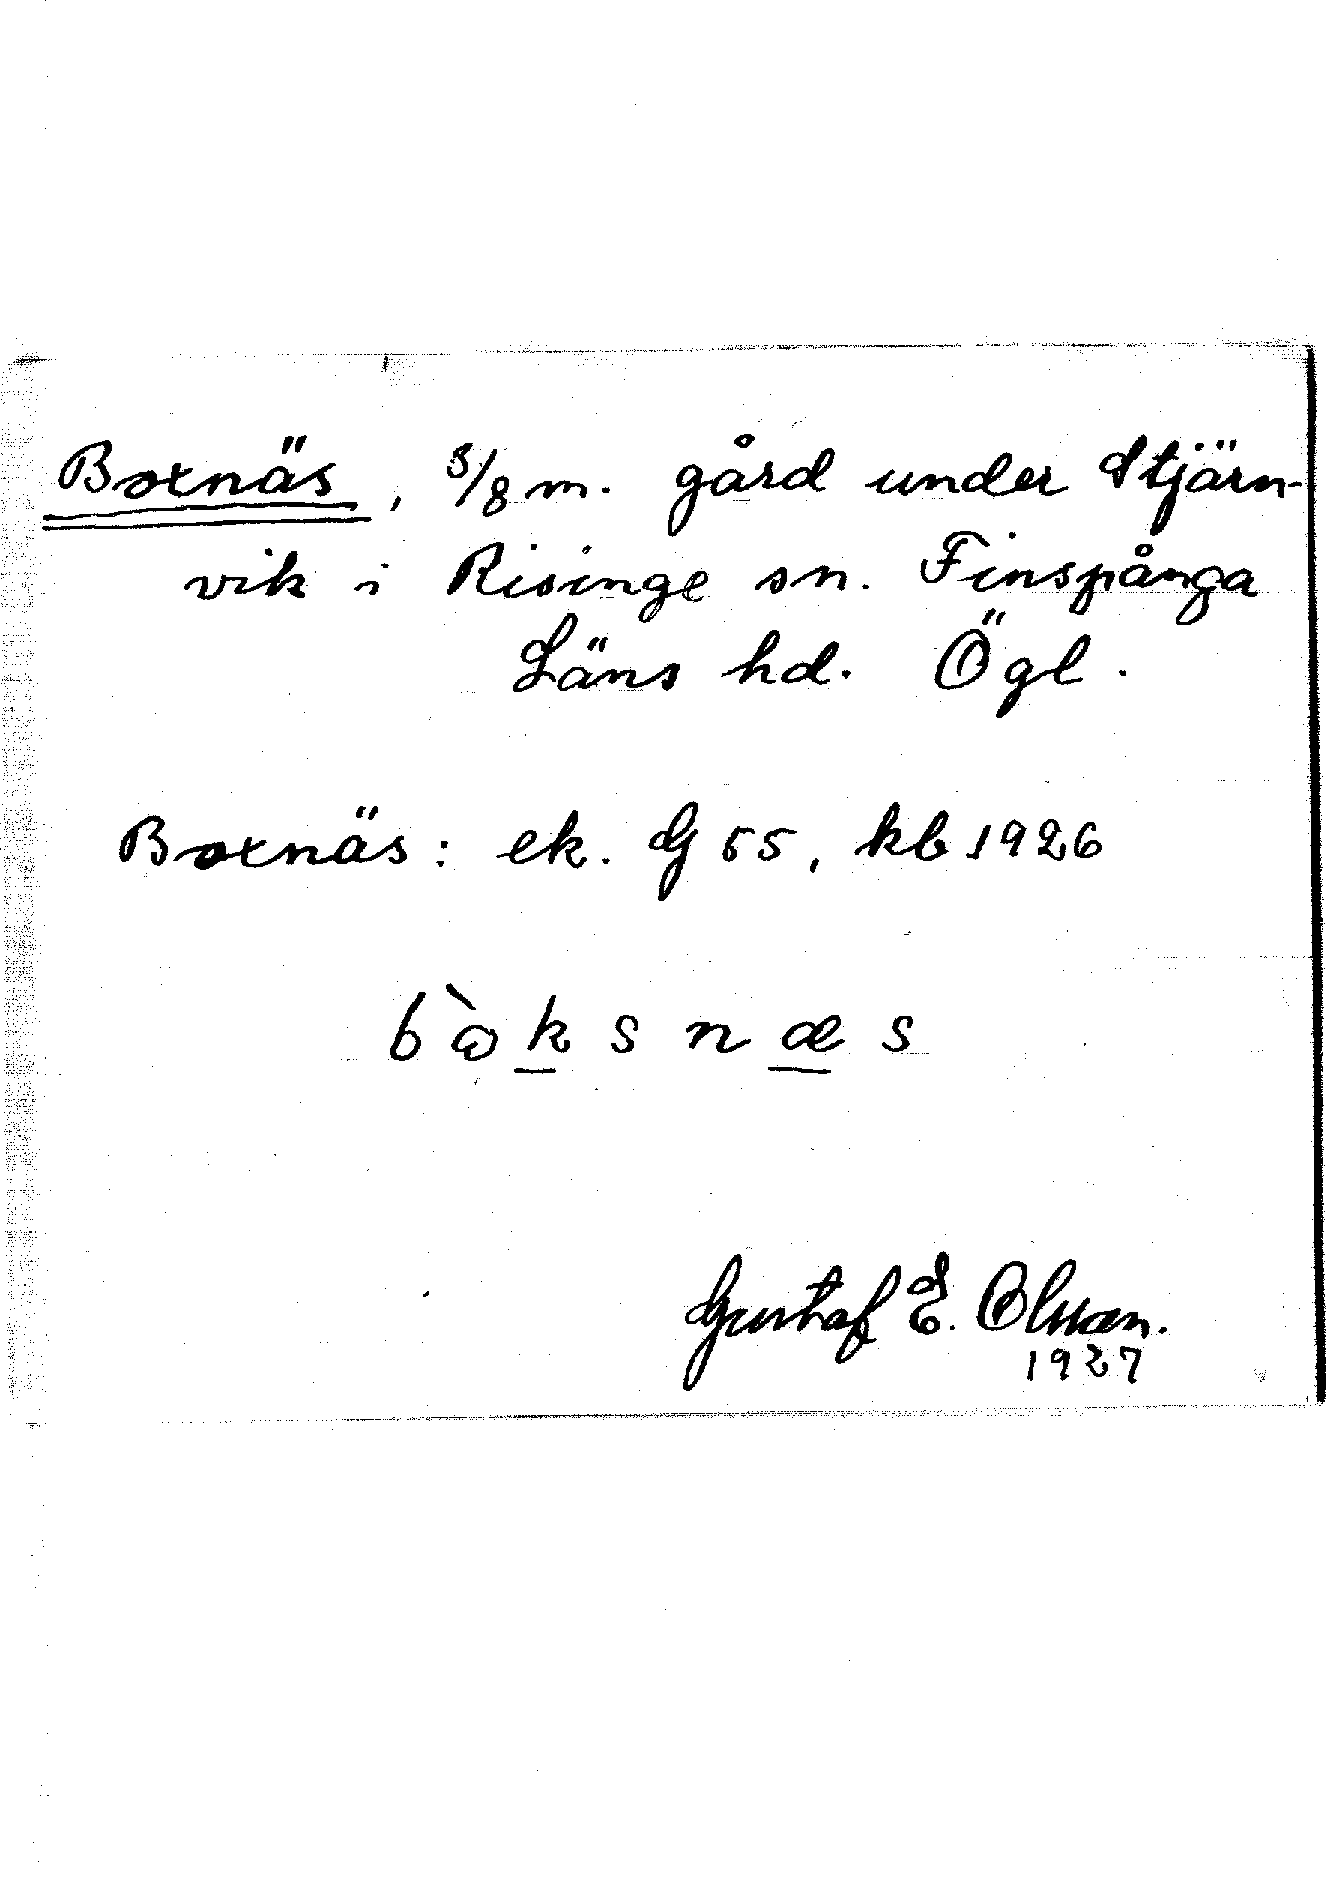 Boxnäs, 3/8 m. gård under Stjärn-
vik i Risinge sn. Finspånga
Läns hd. Ögl.
Boxnäs: ek. G 55, kb 1926
b̀ɷksnæs
Gustaf E. Olsson.
1927